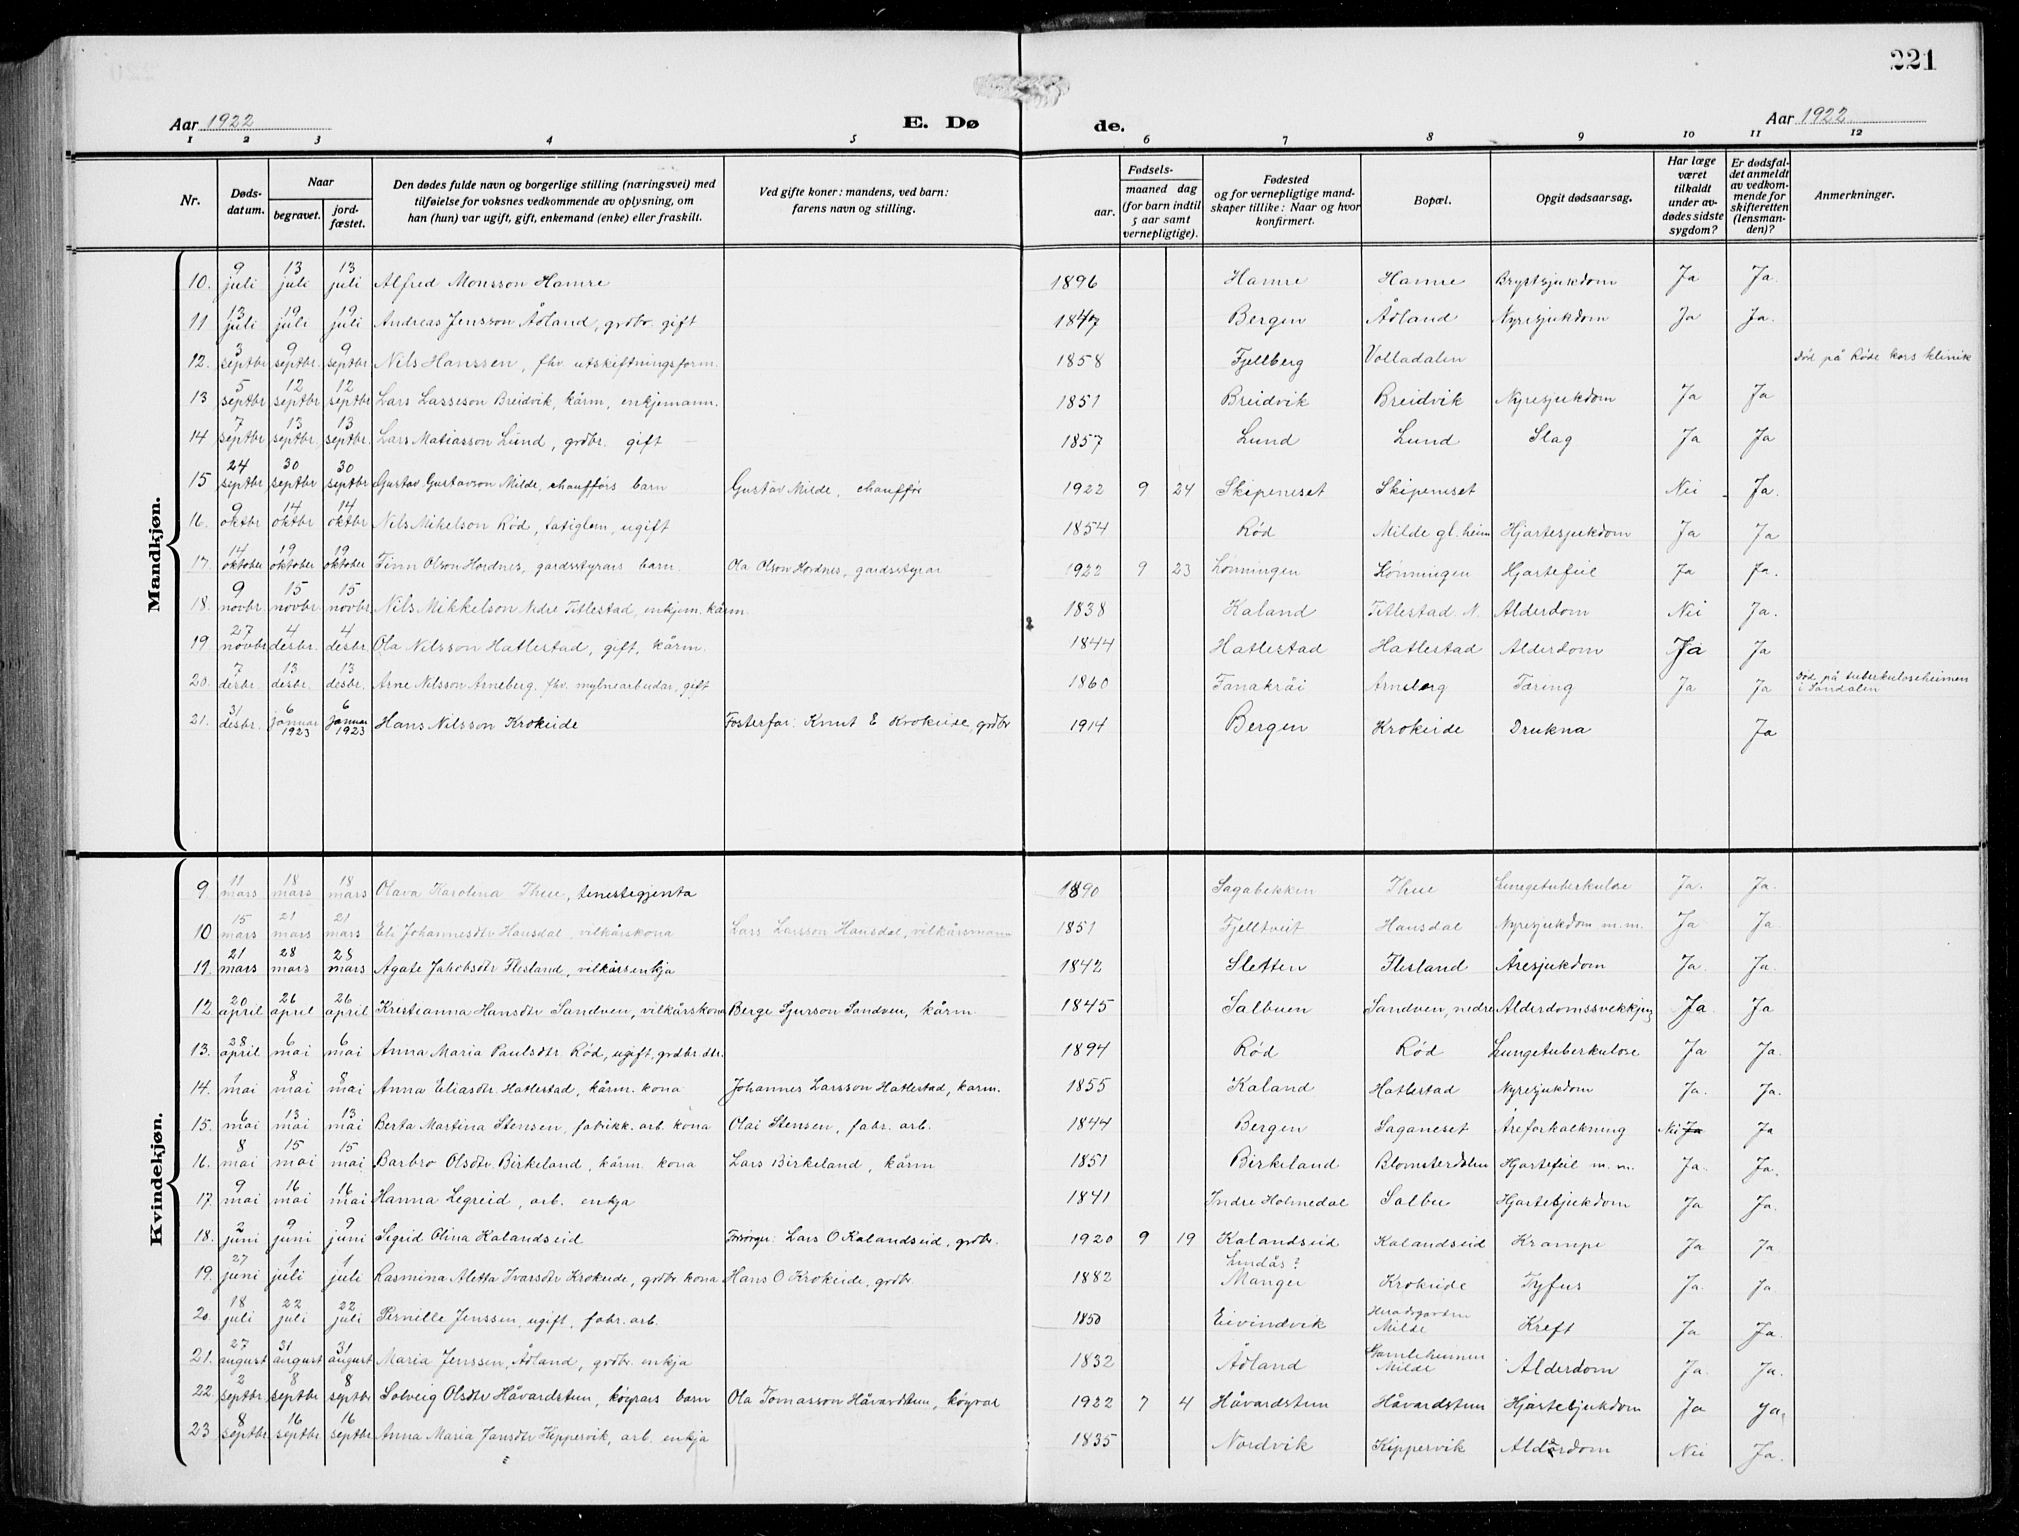 221
Aar 1922 E. Dø de. Aar 1922
1 2 3 4 5 6 7 8 9 10 11 12
Nr. Døds-datum. Naar begravet. jord-fæstet. Den dødes fulde navn og borgerlige stilling (næringsvei) med tilføielse for voksnes vedkommende av oplysning, om han (hun) var ugift, gift, enkemand (enke) eller fraskilt. Ved gifte koner: mandens, ved barn: farens navn og stilling. Fødsels- aar. maaned dag (for barn indtil 5 aar samt vernepligtige). Fødested og for vernepligtige mand-skaper tillike: Naar og hvor konfirmert. Bopæl. Opgit dødsaarsag. Har læge været tilkaldt under av-dødes sidste sygdom? Er dødsfal-det anmeldt av vedkom-mende for skifteretten (lensman-den)? Anmerkninger.
Mandkjøn.
10. 9 juli 13 juli 13 juli Alfred Monsson Hamre 1896 Hamre Hamre Brystsjukdom Ja Ja.
11 13 juli 19 juli 19 juli Andreas Jensson Ådland, grdbr. gift 1847 Bergen Ådland Nyresjukdom Ja Ja.
12. 3 septbr 9 septbr. 9 septbr. Nils Hanssen, fhv. utskiftningsform. 1858 Fjellberg Volladalen Død på Røde kors klinik
13 5 septbr 12 septbr 12 septbr Lars Lasseson Breidvik, kårm, enkjemann. 1851 Breidvik Breidvik Nyresjukdom Ja Ja
14 7 septbr 13 septbr. 13 septbr. Lars Matiasson Lund, grdbr. gift 1857 Lund Lund Slag Ja Ja
15 24 septbr 30 septbr 30 septbr Gustav Gustavson Milde, chaufførs barn Gustav Milde, chauffør 1922 9 24 Skipeneset Skipeneset Nei Ja.
16. 9 oktbr 14 oktbr 14 oktbr Nils Mikelson Rød, fatiglem, ugift 1854 Rød Milde gl. heim Hjartesjukdom Ja Ja
17. 14 oktober 19 oktober 19 oktober Finn Olson Hordnes, gardsstyrars barn. Ola Olson Hordnes, gardsstyrar 1922 9 23 Lønningen Lønningen Hjartefeil Ja Ja.
18. 9 novbr. 15 novbr 15 novbr Nils Mikkelson Nedre Titlestad, enkjem. kårm. 1838 Kaland Titlestad N. Alderdom Nei Ja.
19. 27 novbr 4 desbr. 4 desbr. Ola Nilsson Hatlestad, gift, kårm. 1844 Hatlestad Hatlestad Alderdom Ja Ja
20. 7 desbr. 13 desbr. 13 desbr. Arne Nilsson Arneberg. fhv. mylnearbeidar, gift 1860 Fanakråi Arneberg Tæring Ja Ja Død på tuberkuloseheimen i Sandalen
21. 31 desbr. 6 januar 1923 6 januar 1923 Hans Nilsson Krokeide Fosterfar: Knut E Krokeide, grdbr 1914 Bergen Krokeide Drukna Ja
Kvindekjøn.
9 11 mars 18 mars 18 mars Olava Karolina Thue, tenestegjenta 1890 Sagabekken Thue Lungetuberkulose Ja. Ja.
10 15 mars 21 mars 21 mars Eli Johannesdtr Hausdal, vilkårskona Lars Larsson Hausdal, vilkårsmann 1851 Fjelltveit Hausdal Nyresjukdom m.m. Ja Ja.
11. 21 mars 28 mars 28 mars Agate Jakobsdtr Flesland, vilkårsenkja 1842 Sletten Flesland Åresjukdom Ja. Ja.
12. 20 april 26 april 26 april Kristianna Hansdtr Sandven, vilkårskona Berge Sjurson Sandven, kårm. 1845 Salbuen Sandven, nedre Alderdomssvekkjing Ja. Ja
13. 28 april 6 mai 6 mai Anna Maria Paulsdtr Rød, ugift, grdbr. dtr. 1894 Rød Rød Lungetuberkulose Ja Ja.
14. 1 mai 8 mai 8 mai Anna Eliasdtr Hatlestad, kårm. kona Johannes Larsson Hatlestad, kårm. 1855 Kaland Hatlestad Nyresjukdom Ja. Ja.
15. 6 mai 13 mai 13 mai Berta Martina Stensen, fabrikk. arb. kona Olai Stensen, fabr. arb. 1844 Bergen Saganeset Åreforkalkning Nei Ja Ja
16. 8 mai 15 mai 15 mai Barbro Olsdtr. Birkeland, kårm. kona Lars Birkeland, kårm 1851 Birkeland Blomsterdalen Hjartefeil m.m. Ja. Ja.
17. 9 mai 16 mai 16 mai Hanna Legreid, arb. enkja 1841 Indre Holmedal Salbu Hjartesjukdom Ja Ja.
18. 2 juni 9 juni 9 juni Sigrid Olina Kalandseid Forsørger: Lars O Kalandseid, grdbr. 1920 9 19 Kalandseid Kalandseid Krampe Ja Ja.
19. 27 juni 1 juli 1 juli Rasmina Aletta Ivarsdtr Krokeide, grdbr kona Hans O Krokeide, grdbr. 1882 Lindås? Manger Krokeide Tyfus Ja. Ja
20. 18 juli 22 juli 22 juli Pernille Jenssen, ugift, fabr. arb. 1850 Eivindvik Heradsgarden Milde Kreft Ja Ja.
21. 27 august 31 august 31 august Maria Jenssen, Ådland, grdbr. enkja 1832 Ådland Gamleheimen Milde Alderdom Ja. Ja.
22. 2 septbr 8 septbr 8 septbr Solveig Olsdtr Håvardstun, køyrars barn Ola Tomasson Håvardstun, køyrar 1922 7 4 Håvardstun Håvardstun Hjartesjukdom Ja Ja.
23 8 septbr 16 septbr 16 septbr Anna Maria Jansdtr Kippervik, arb. enkja 1835 Nordvik Kippervik Alderdom Nei Ja.